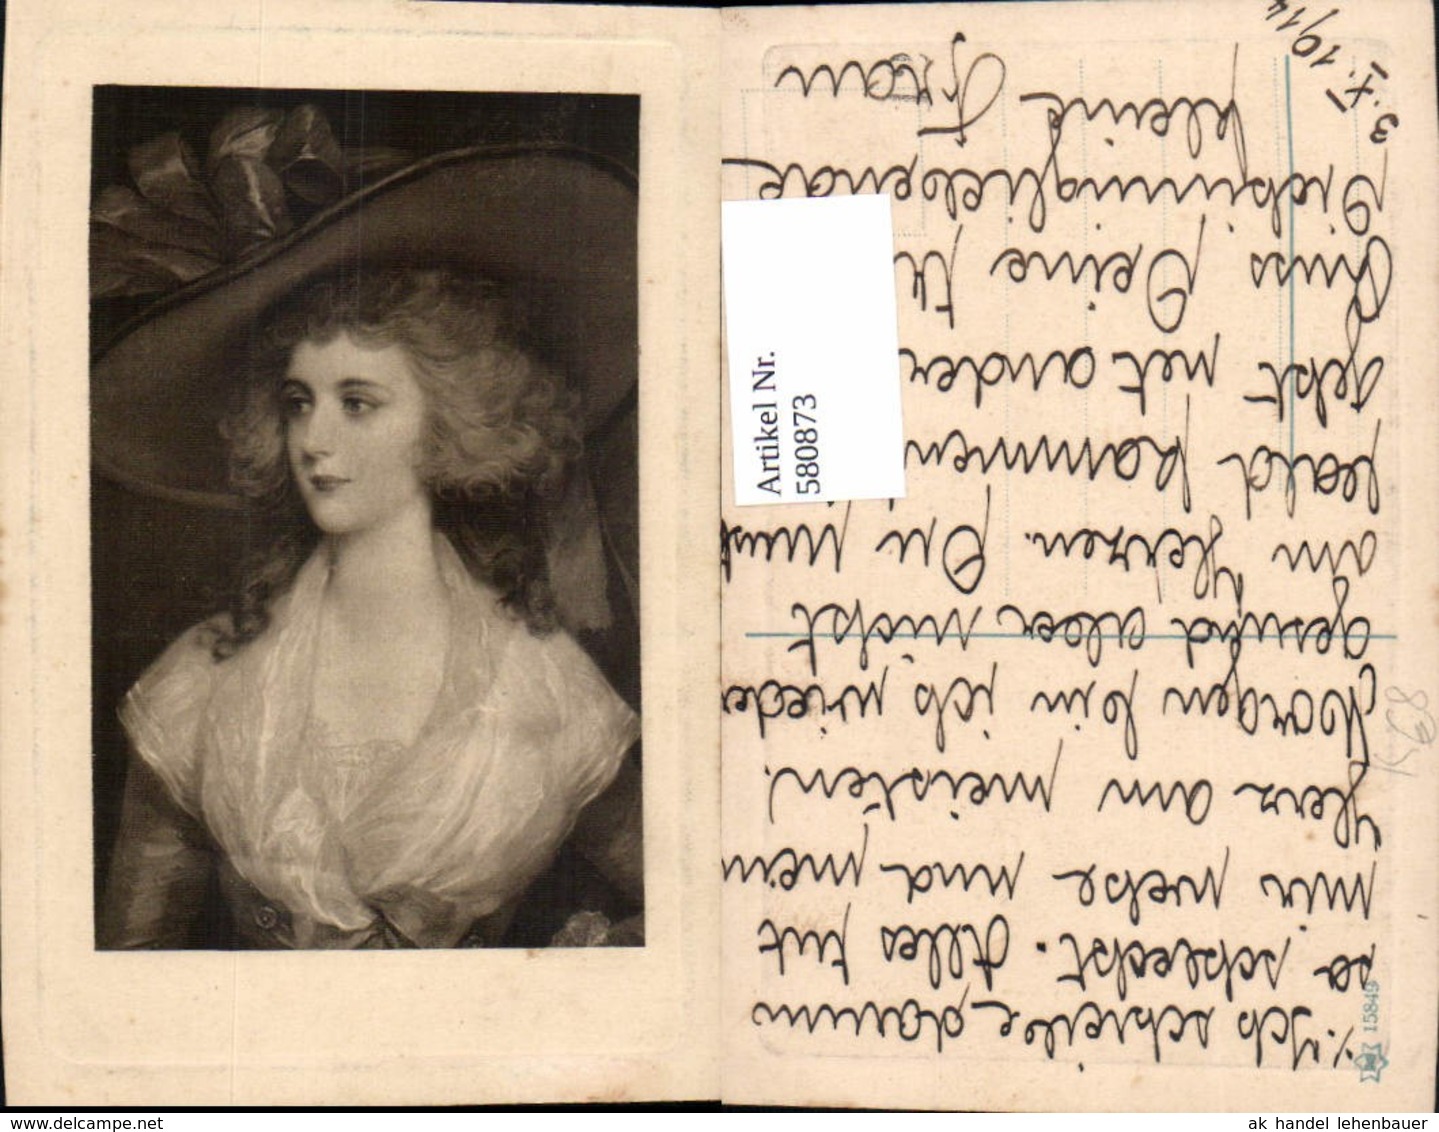 ./. Ich schreibe darum
so schlecht. Alles tut
mir wehe und mein
Herz am meisten.
Morgen bin ich wieder
gesund aber nicht
am Herzen. Du musst
bald kommen
geht net ander
Kuss Deine
Dichinnigliebende
kleine Frau
3.X.1914
15849
Artikel Nr.
580873
www.delcampe.net
ak handel lehenbauer